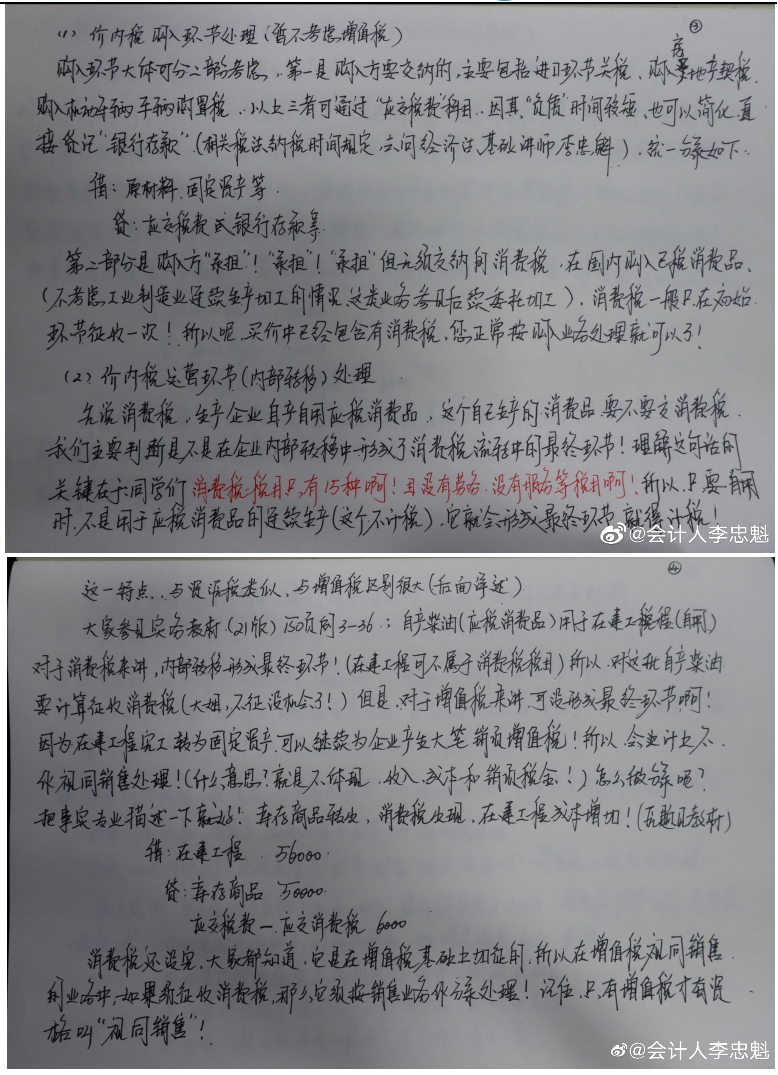 ③
(1) 价内税 购入环节处理(暂不考虑增值税)
购入环节大体可分二部分考虑。第一是购入方要交纳的,主要包括进口环节关税、购入房地产契税、
购入机动车辆车辆购置税。以上三者可通过“应交税费”科目。因其“负债”时间较短,也可以简化,直
接贷记“银行存款”(相关税法纳税时间规定,六问经济法基础讲师李忠魁)。统一分录如下:
借:原材料、固定资产等
贷:应交税费或银行存款等
第二部分是购入方“承担”!“承担”!“承担”但无须交纳的消费税。在国内购入已税消费品,
(不考虑工业制造业连续生产加工的情况,这类业务参见后续委托加工),消费税一般只在初始
环节征收一次!所以呢,买价中已经包含有消费税,您正常按购入业务处理就可以了!
(2)价内税运营环节(内部转移)处理
先说消费税,生产企业自产自用应税消费品,这个自己生产的消费品要不要交消费税。
我们主要判断是不是在企业内部转移中形成了消费税流转中的最终环节!理解这句话的
关键在于同学们消费税税目只有15种啊!且没有劳务、没有服务等税目啊!所以,只要自用
时,不是用于应税消费品的连续生产(这个不计税),它就会形成最终环节,就得计税!
@会计人李忠魁
④
这一特点,与资源税类似,与增值税区别很大(后面详述)
大家参见实务教材(21版)150页例3-36:自产柴油(应税消费品)用于在建工程(自用)
对于消费税来讲,内部转移形成最终环节!(在建工程可不属于消费税税目)所以,对这批自产柴油
要计算征收消费税(大姐,不征没机会了!)但是,对于增值税来讲,可没形成最终环节啊!
因为在建工程完工转为固定资产,可以继续为企业产生大笔销项增值税!所以会计上不
作视同销售处理!(什么意思?就是不体现 收入、成本和销项税金!)怎么做分录呢?
把事实专业描述一下就好!库存商品转出,消费税出现,在建工程成本增加!(原题见教材)
借:在建工程 56000
贷:库存商品 50000
应交税费—应交消费税 6000
消费税还没完,大家都知道,它是在增值税基础上加征的,所以在增值税视同销售
的业务中,如果须征收消费税,那么它须按销售业务作分录处理!记住,只有增值税才有资
格叫“视同销售”!
@会计人李忠魁